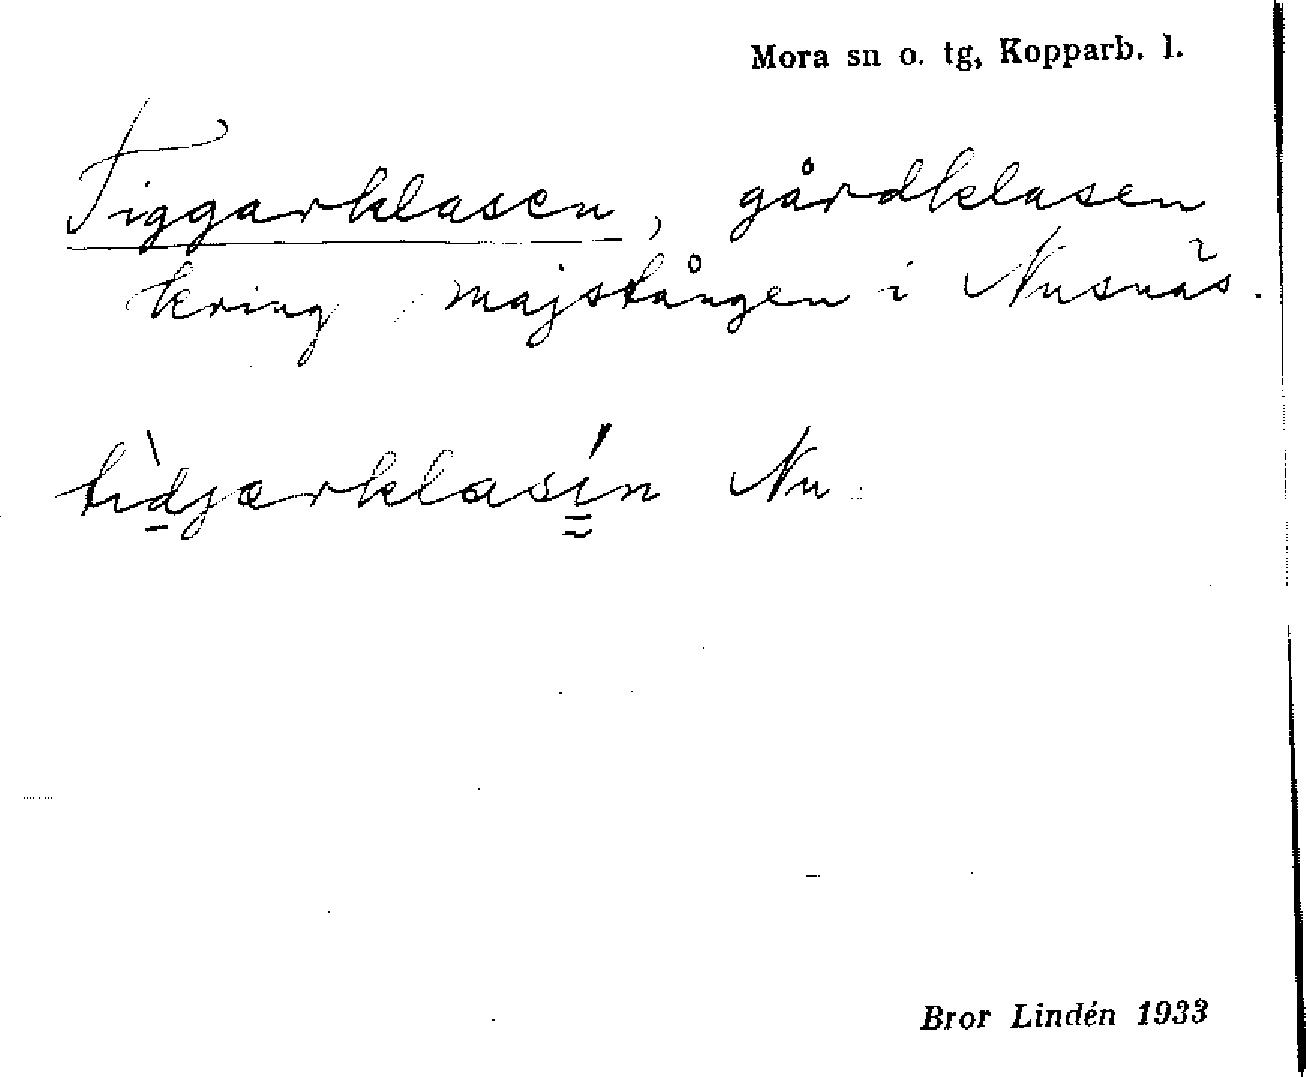 Mora sn o. tg, Kopparb. l.
Tiggarklasen, gårdklasen
kring majstången i Nusnäs.
tìdjærklasín Nu.
Bror Lindén 1933